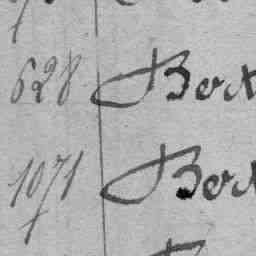 628 Bert
1071 Bert